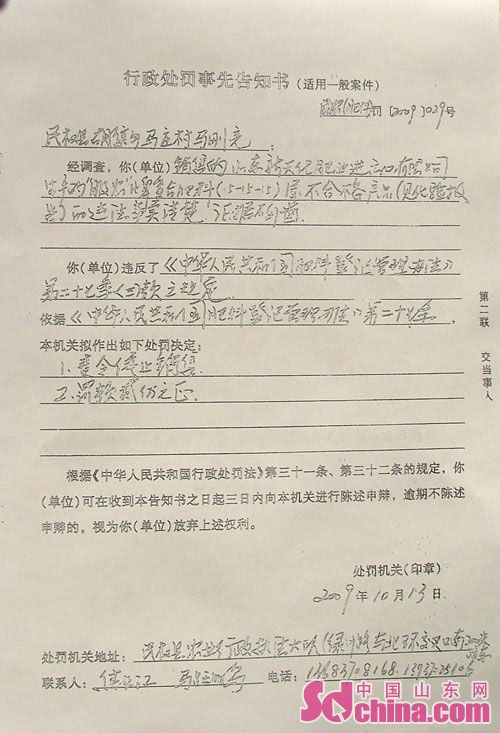 行政处罚事先告知书(适用一般案件)
罚〔2009〕029号
民权县胡集乡马庄村马刚亮:
经调查,你(单位)销售的山东 肥业进出口有限公司
生产的" "牌复合肥料(15-15-15)属不合格产品(见化验报
告)的违法事实清楚,证据确凿
你(单位)违反了《中华人民共和国肥料登记管理办法》
第二十七条(三)款之规定
依据《中华人民共和国肥料登记管理办法》第二十七条
本机关拟作出如下处罚决定:
1.责令停止销售.
2.罚款贰仟元正.
根据《中华人民共和国行政处罚法》第三十一条、第三十二条的规定,你
(单位)可在收到本告知书之日起三日内向本机关进行陈述申辩,逾期不陈述
申辩的。视为你(单位)放弃上述权利。
处罚机关(印章)
2009年10月13日
处罚机关地址:民权县农业行政执法大队
联系人: 电话:
第二联 交当事人
中国山东网
SDchina.com